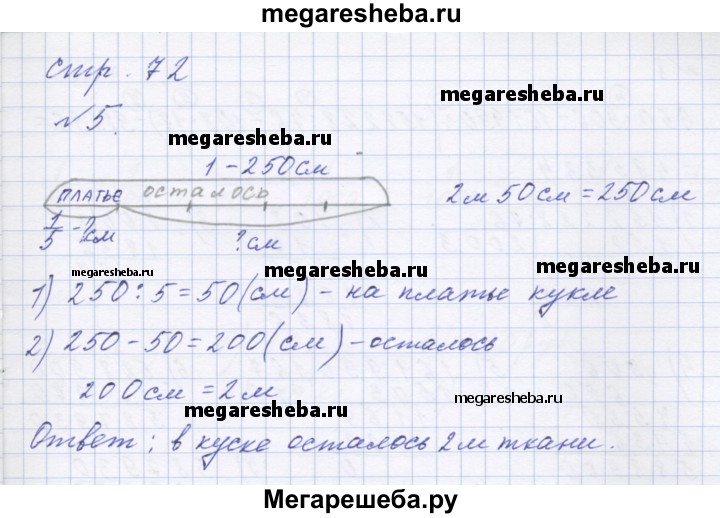 megaresheba.ru
стр. 72
megaresheba.ru
№5.
megaresheba.ru
1 - 250см
ПЛАТЬЕ осталось
2м 50см = 250см
1/5 - ?см
?см
megaresheba.ru
megaresheba.ru
megaresheba.ru
megaresheba.ru
1) 250 : 5 = 50 (см) - на платье кукле
2) 250 - 50 = 200 (см) - осталось
200см = 2м
megaresheba.ru
megaresheba.ru
Ответ: в куске осталось 2м ткани.
Мегарешеба.ру